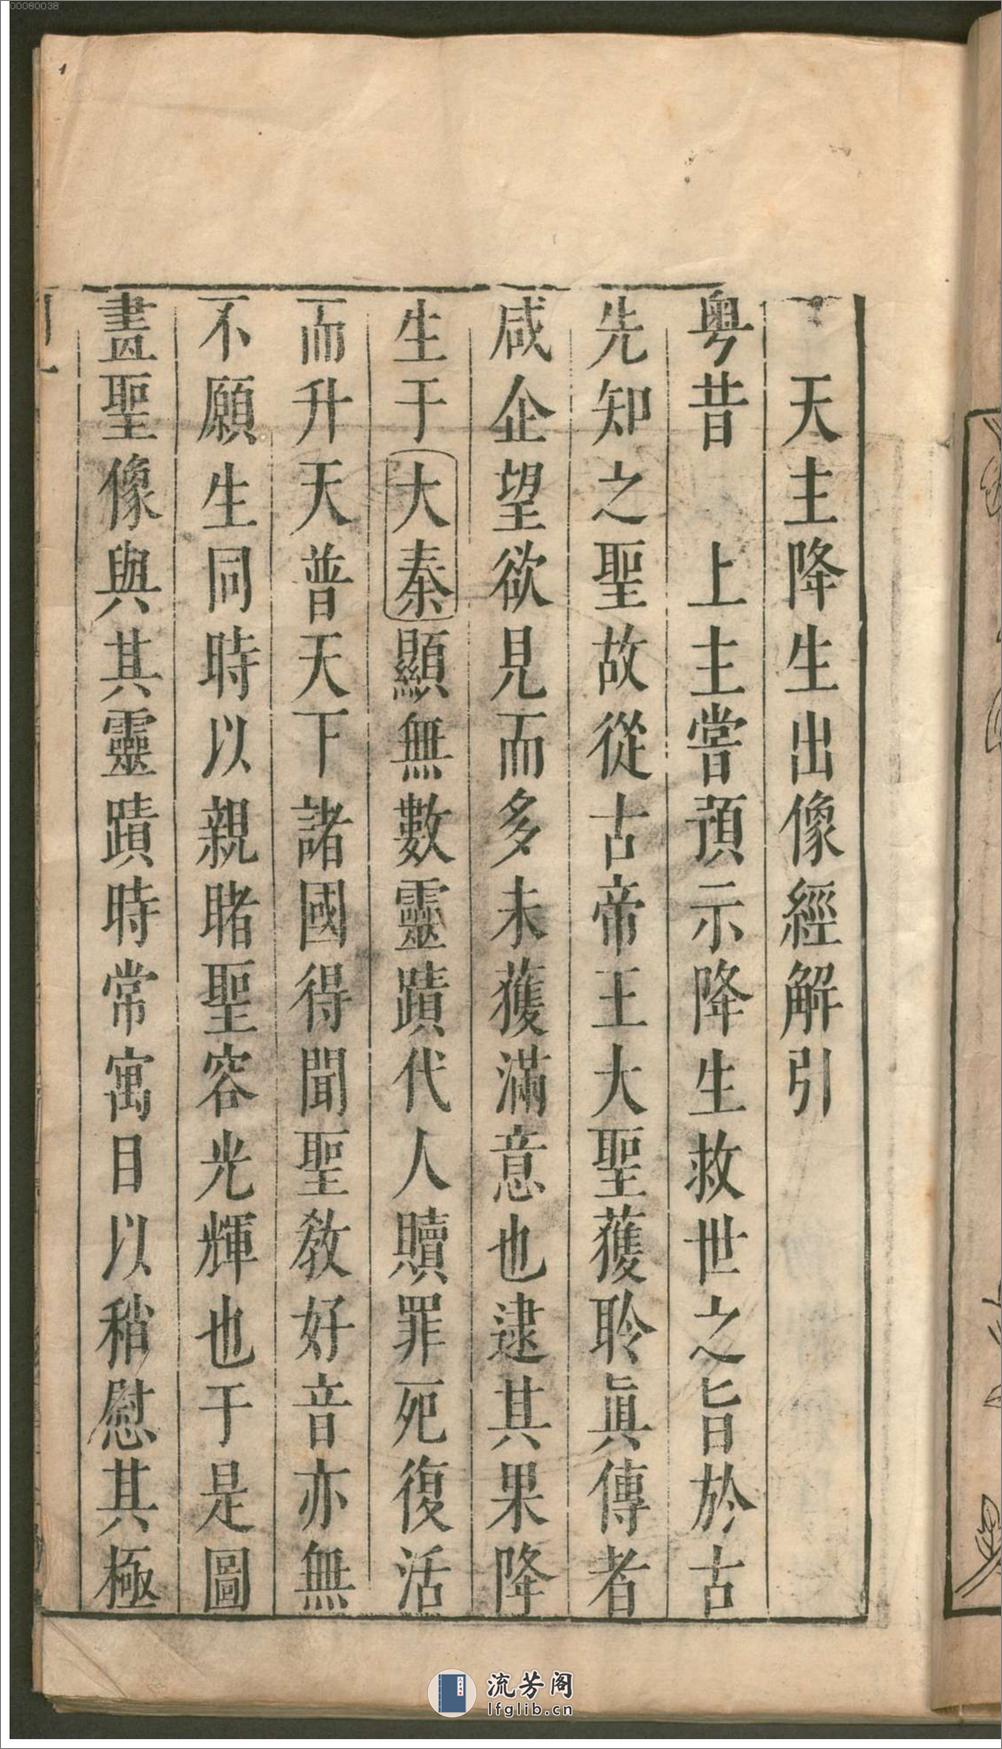 天主降生出像經解引
粵昔　上主嘗預示降生救世之旨於古
先知之聖故從古帝王大聖獲聆眞傳者
咸企望欲見而多未獲滿意也逮其果降
生于大秦顯無數靈蹟代人贖罪死復活
而升天普天下諸國得聞聖教好音亦無
不願生同時以親睹聖容光輝也于是圖
畫聖像與其靈蹟時常寓目以稍慰其極
00080038
流芳阁
lfglib.cn